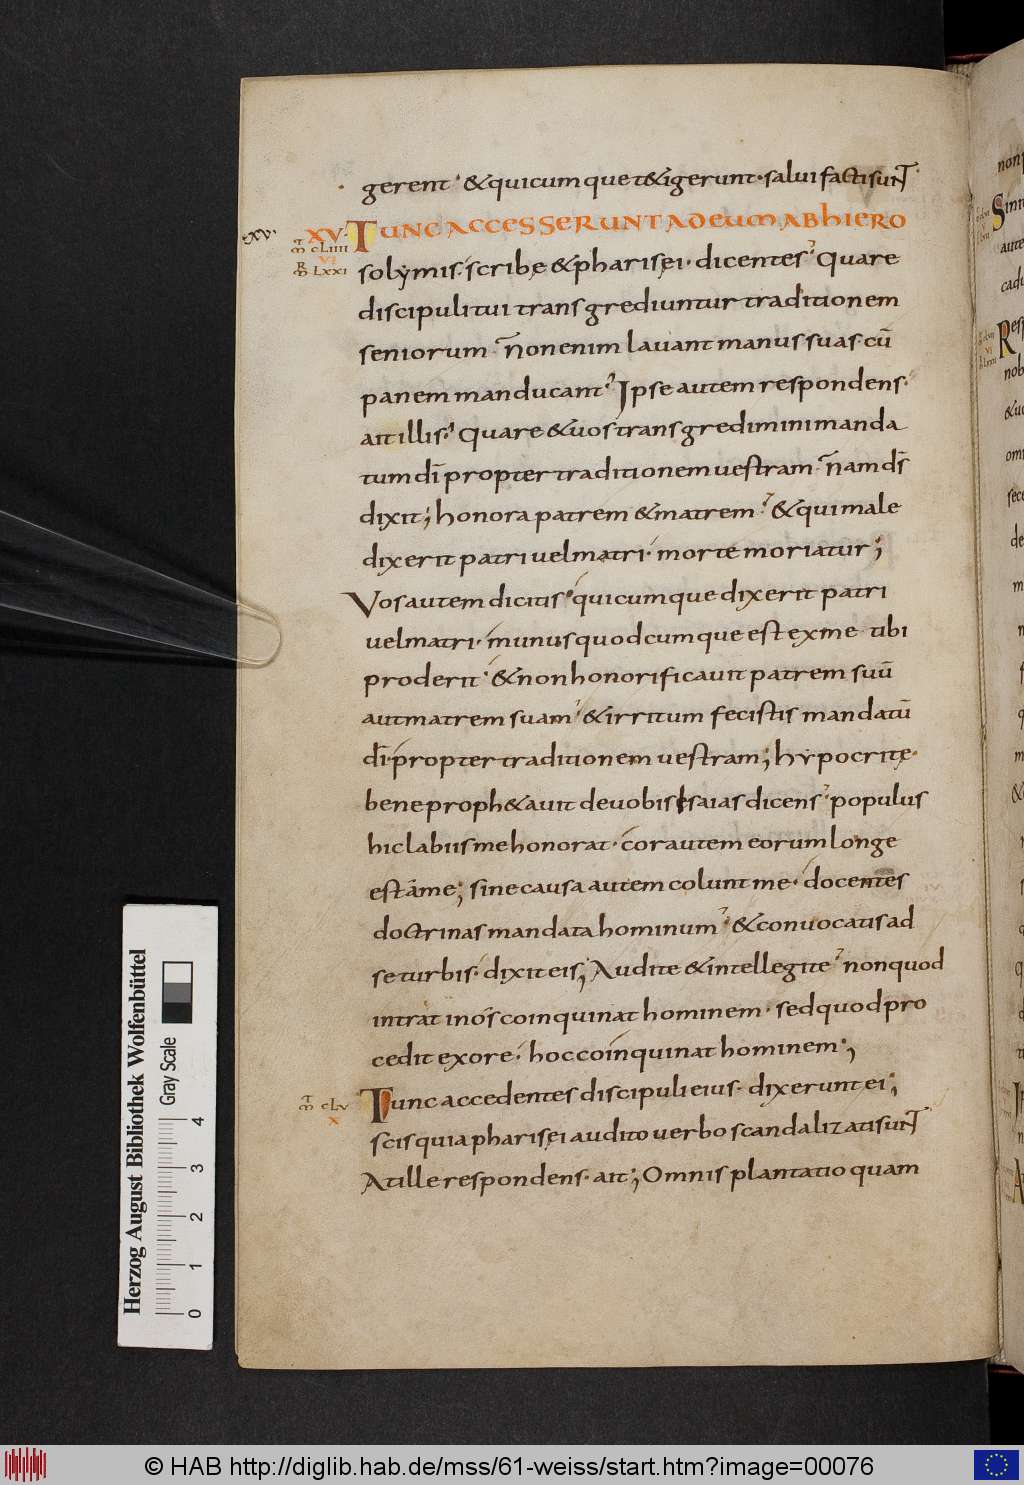 gerent · & quicumque t&igerunt · salui facti sunt̄
·xv·
XV·
m̄ cLiiii
VI
m̄ Lxxi
TUNC ACCESSERUNT AD EUM AB HIERO
solymis · scribę & pharisęi · dicentes · Quare
discipuli tui transgrediuntur traditionem
seniorum · N̄on enim lauant manus suas cū
panem manducant · Ipse autem respondens ·
ait illis · Quare & uos transgredimini manda
tum dī propter traditionem uestram · N̄am d̄s
dixit; honora patrem & matrem · & qui male
dixerit patri uel matri · morte moriatur;
Vos autem dicitis · quicumque dixerit patri
uel matri · munus quodcumque est ex me tibi
proderit · & non honorificauit patrem suū
aut matrem suam · & irritum fecistis mandatū
dī · propter traditionem uestram; hypocritę ·
bene proph&auit de uobis esaias dicens · populus
hic labiis me honorat · cor autem eorum longe
est a me; sine causa autem colunt me · docentes
doctrinas mandata hominum · & conuocatis ad
se turbis · dixit eis; Audite & intellegite · non quod
intrat in os coinquinat hominem · sed quod pro
cedit ex ore · hoc coinquinat hominem;
m̄ cLv
x
Tunc accedentes discipuli eius · dixerunt ei;
scis quia pharisęi audito uerbo scandalizati sunt̄
At ille respondens · ait; Omnis plantatio quam
Herzog August Bibliothek Wolfenbüttel
Gray Scale
0 1 2 3 4
© HAB http://diglib.hab.de/mss/61-weiss/start.htm?image=00076